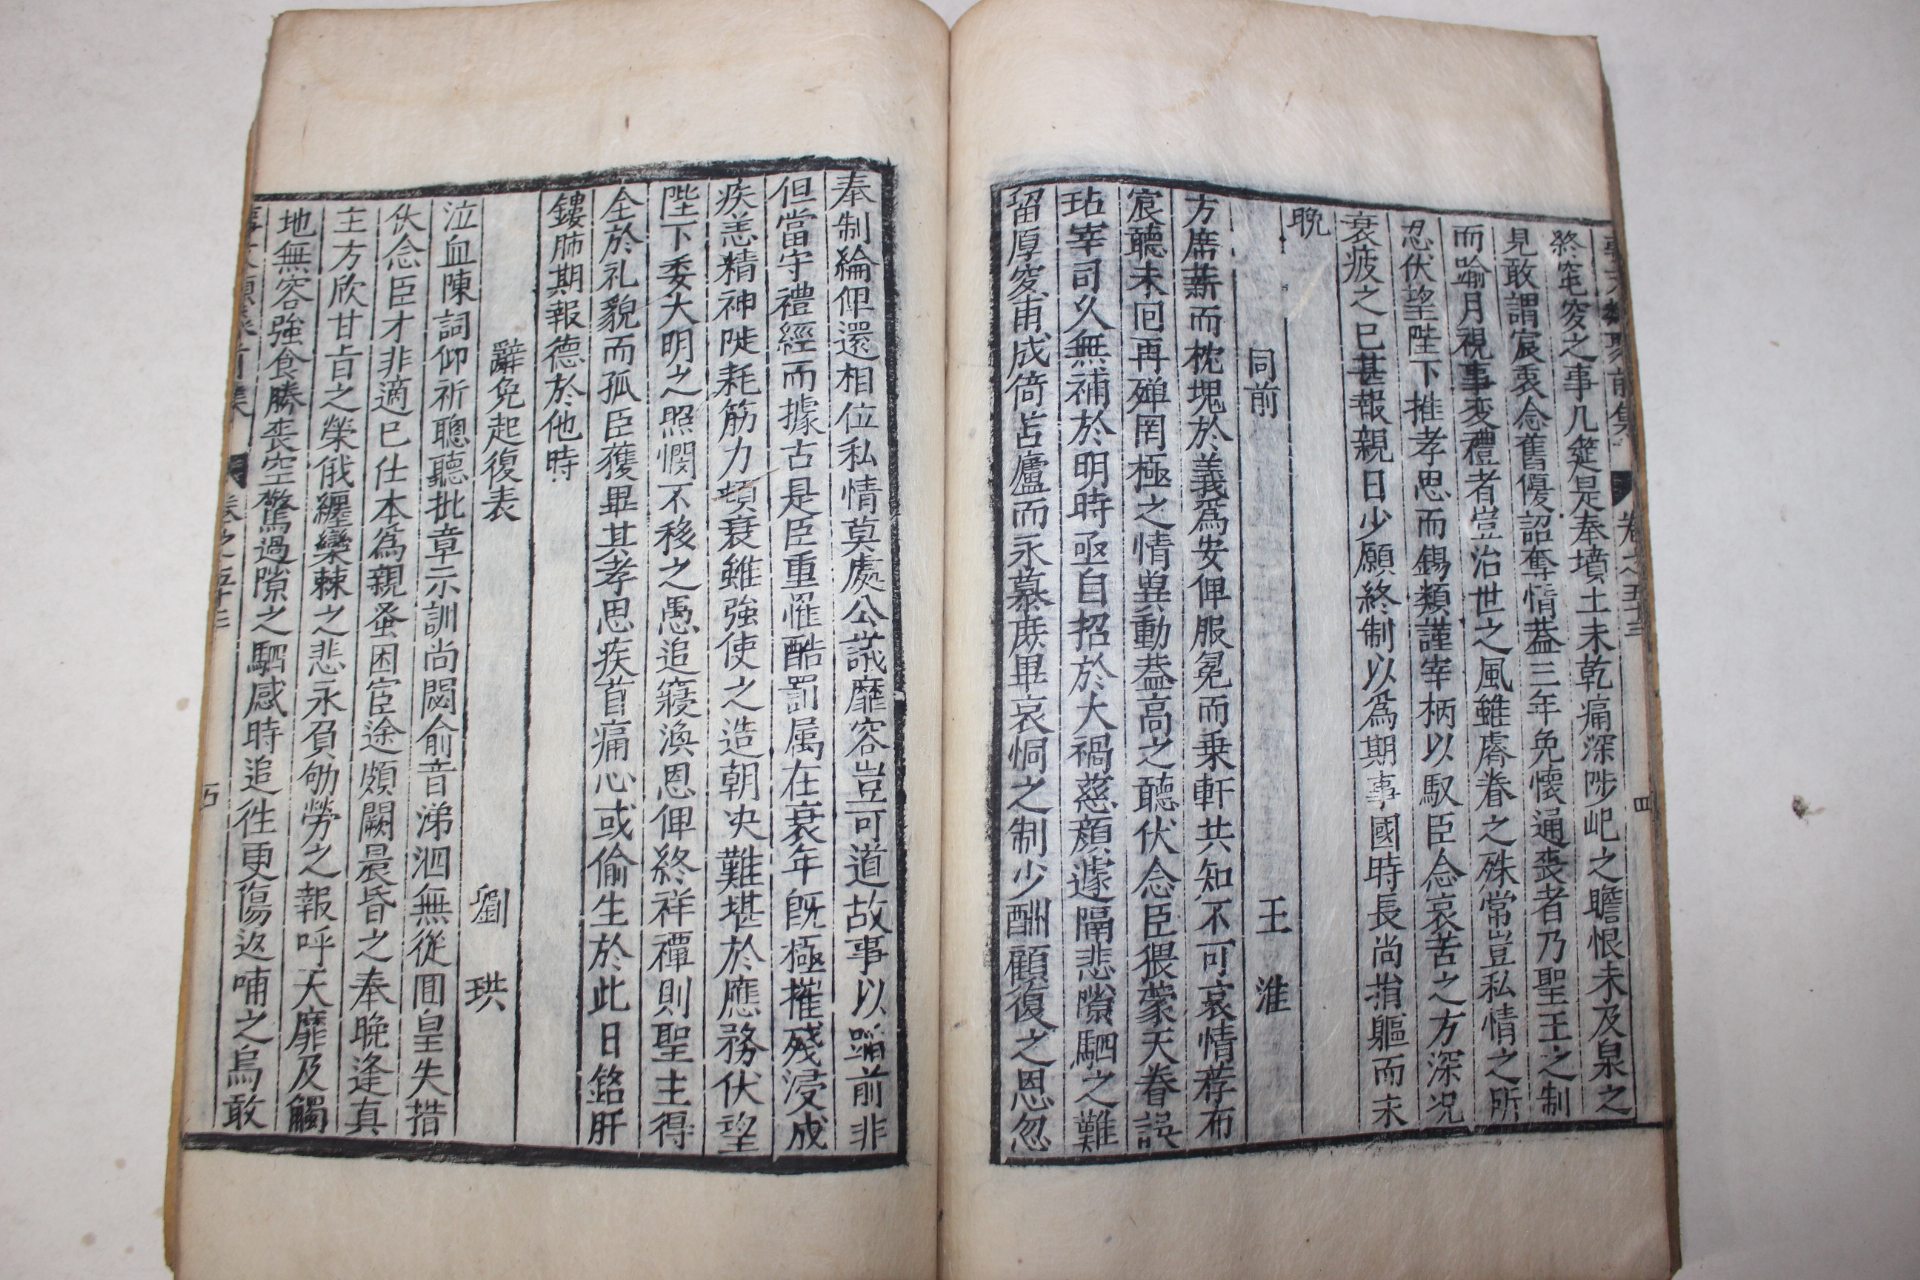 終窀穸之事几筵是奉墳土未乾痛深陟屺之瞻恨未及泉之
見敢謂宸衷念舊優詔奪情葢三年免懷通喪者乃聖王之制
而喻月視事変禮者豈治世之風雖膺眷之殊常豈私情之所
忍伏望陛下推孝思而錫類謹宰柄以馭臣念哀苦之方深况
衰疲之已甚報親日少願終制以為期事國時長尚捐軀而未
晩
同前 王淮
方席薪而枕塊於義爲安俾服冕而乗軒共知不可哀情荐布
宸聽未囘再殫罔極之情兾動葢高之聽伏念臣猥蒙天眷誤
玷宰司乆無補於明時亟自招於大禍慈顔遽隔悲隙駟之難
留厚穸甫成倚苫廬而永慕庶畢哀恫之制少酬顧復之恩忽
奉制綸俾還相位私情莫處公議靡容豈可道故事以諭前非
但當守禮經而據古是臣重罹酷罰属在衰年旣極摧殘浸成
疾恙精神陡耗筋力頓衰雖強使之造朝决難堪於應務伏望
陛下委大明之照憫不移之愚追寢渙恩俾終祥禫則聖主得
全於礼貌而孤臣獲畢其孝思疾首痛心或偷生於此日銘肝
鏤肺期報德於他時
辭免起復表 劉珙
泣血陳詞仰祈聰聽批章示訓尚閟俞音涕泗無從囬皇失措
伏念臣才非適已仕本爲親蚤困宦途頗闕晨昏之奉晩逢真
主方欣甘旨之榮俄纏欒棘之悲永負劬勞之報呼天靡及觸
地無容強食勝喪空驚過隙之駟感時追徃更傷返哺之烏敢